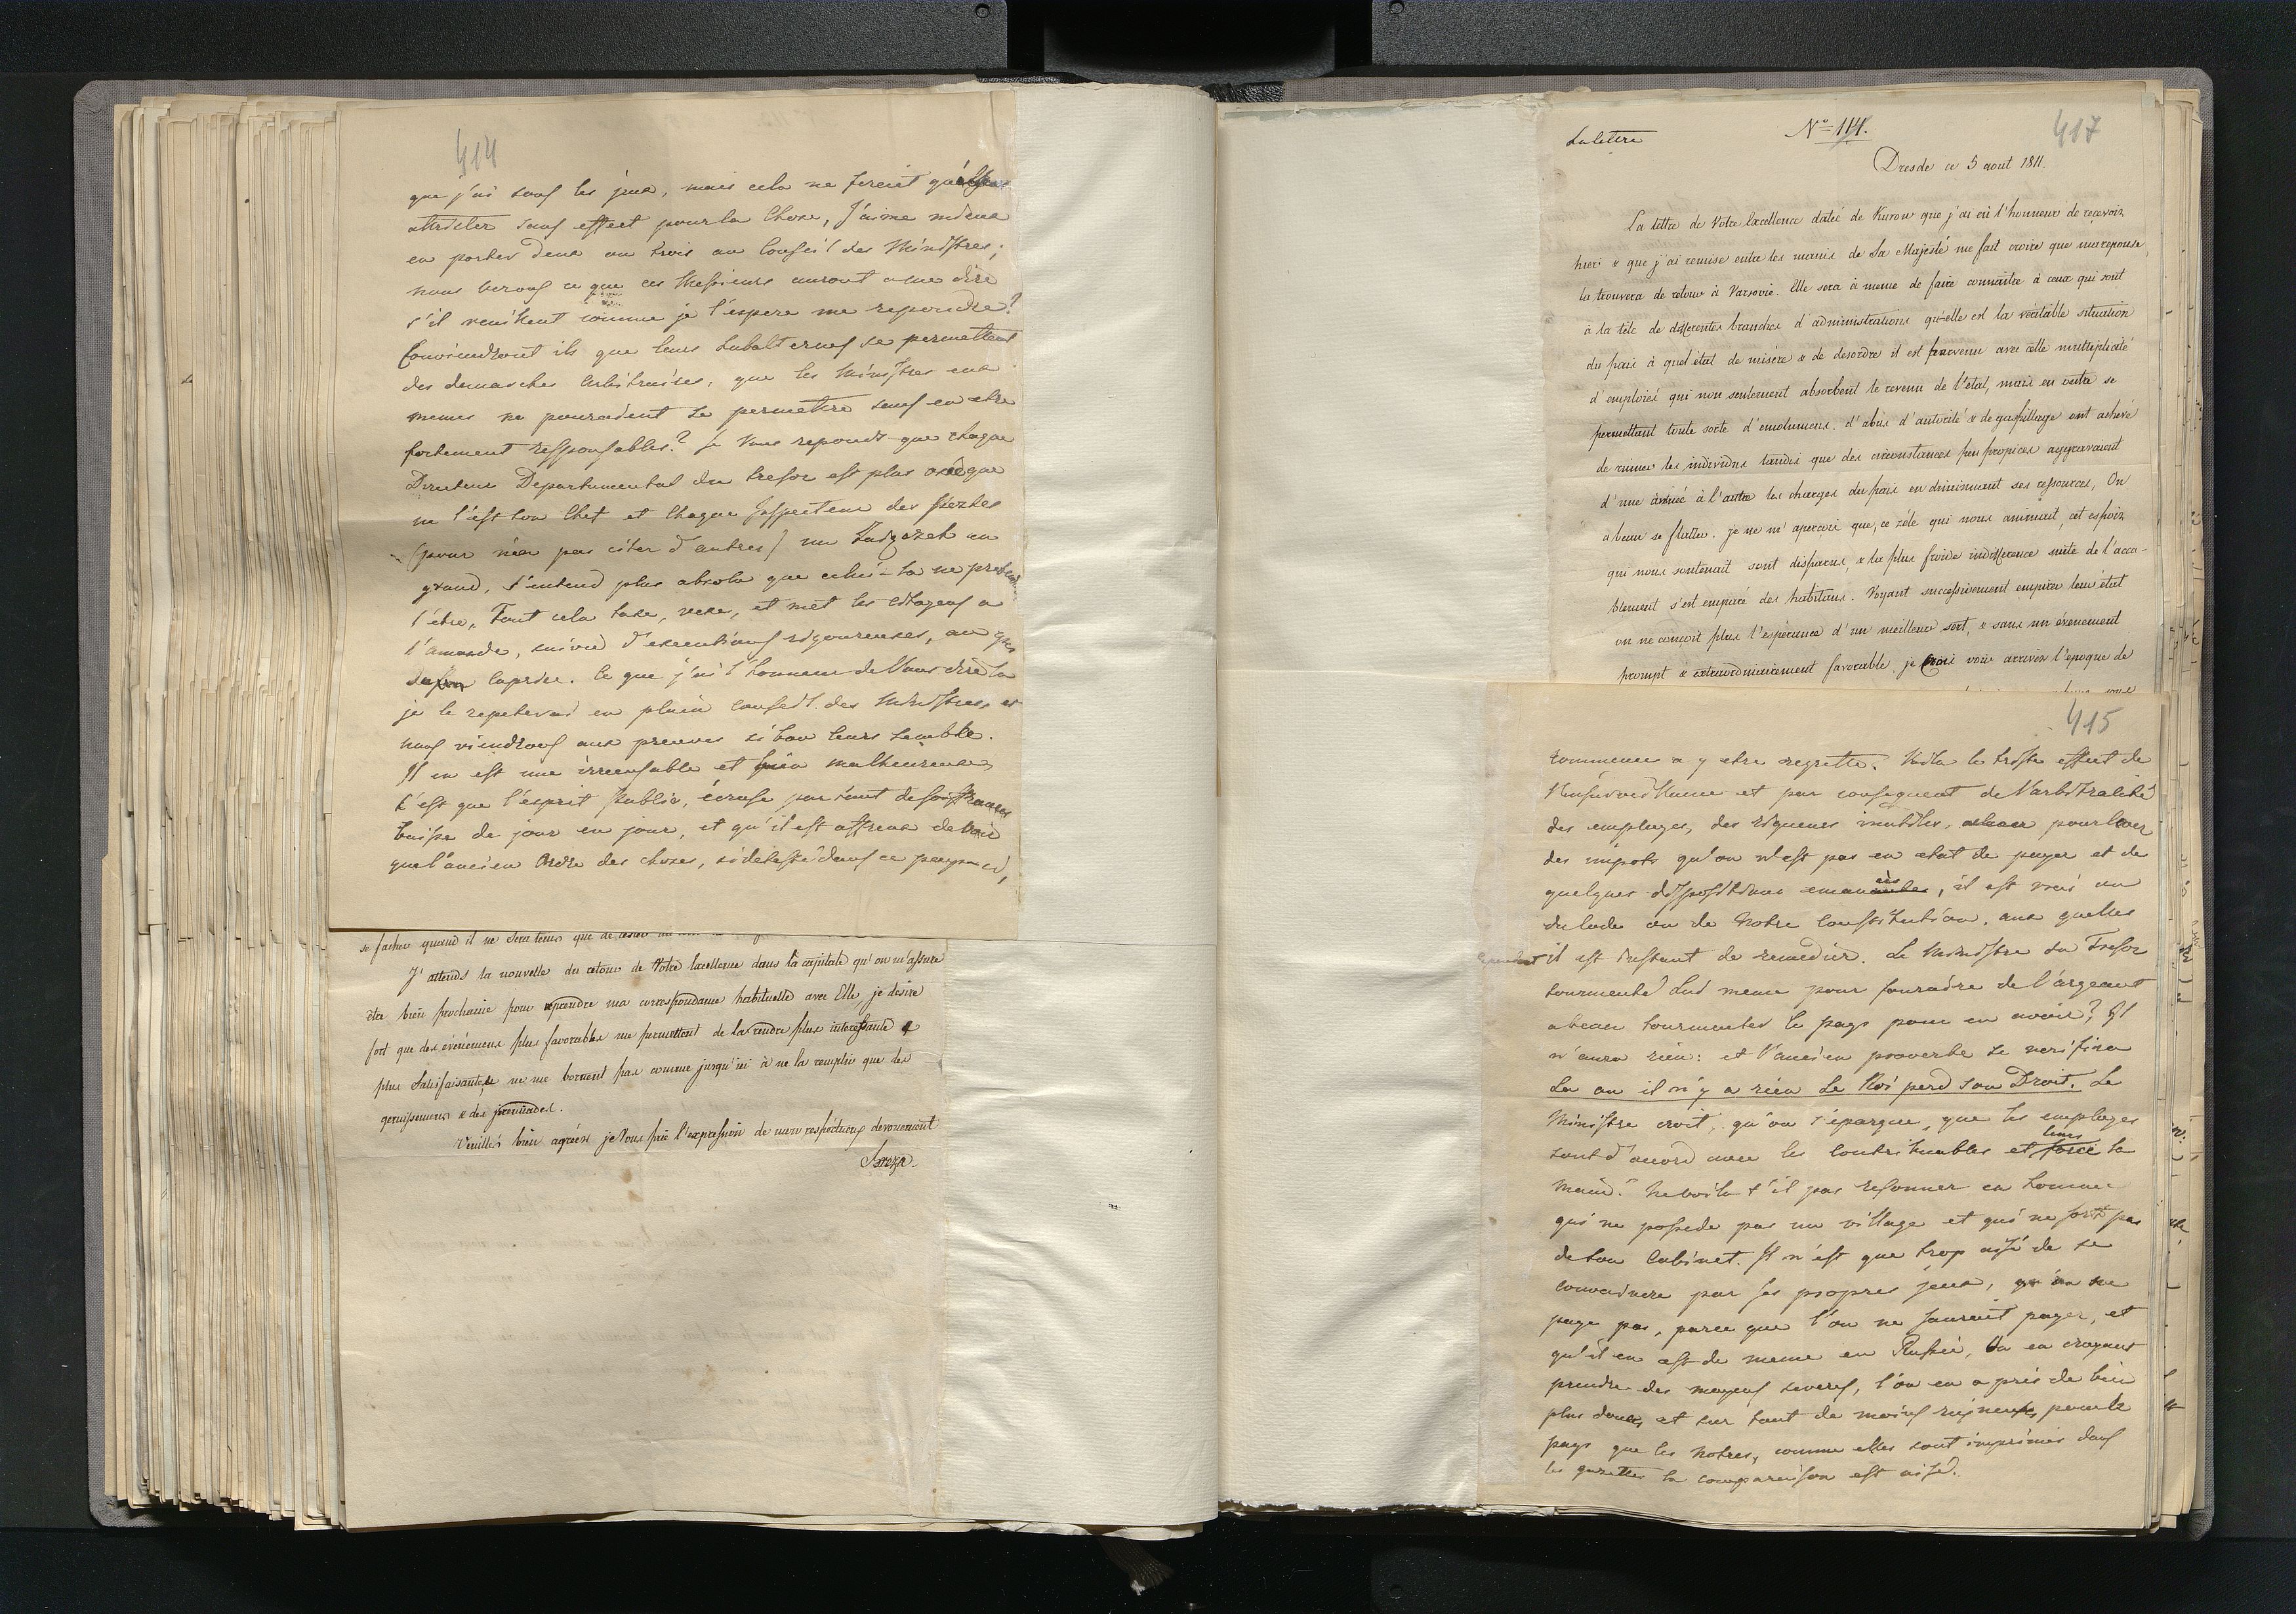 414
que j'ai sous les jeux, mais cela ne feroit qu'
attrister sans effect pour la Chose, J'aime mieux
en porter deux ou trois au Conseil des Ministres;
nous verons ce que ces Messieurs auront a me dire
s'il veuillent comme je l'espere me repondre?
Conviendront ils que leurs Subalternes se permettent
des demarches Arbitraires, que les Ministres eux
memes ne pouraient se permettre sans en etre
fortement responsables? Je Vous reponds que chaque
Directeur Departemental du tresor est plus osé que
ne l'est son Chef et Chaque Inspecteur des
(pour n'en pas citer d'autres) un en
grand, s'entend plus absolu que celui-la ne pretend
l'etre, Tout cela taxe, vexe, et met les Citoyens a
l'amande, suivie d'executions rigoureuses, au gré
caprice. Ce que j'ai l'honneur de Vous dire la
je le repeterai en plein conseil des Ministres et
nous viendrons aux preuves si bon leurs semble.
Il en est une irrecusable et bien malheureuse,
C'est que l'esprit Public, écrasé par tant de souffrances
baisse de jour en jour, et qu'il est affreux de voir
que l'ancien Ordre des choses, si detesté dans ce pays-ci,
se facher quand il ne sera tems que de
J'attends la nouvelle du retour de Votre Excellence dans la capitale qu'on m'assure
être bien prochaine pour reprendre ma correspondance habituelle avec Elle, je desire
fort que des evénémens plus favorables me permettent de la rendre plus interessante &
plus satisfaisante, & ne me bornent pas comme jusqu'ici à ne la remplir que des
gemissemens & des jeremiades.
Veuilles bien agréer je Vous prie l'expression de mon respectueux devouement
Breza.
La lettre
No 114.
417
Dresde ce 5 aout 1811.
La lettre de Votre Excellence datée de Kurow que j'ai eû l'honneur de recevoir
hier & que j'ai remise entre les mains de Sa Majesté me fait croire que ma reponse
la trouvera de retour à Varsovie. Elle sera à meme de faire connaitre à ceux qui sont
à la tête de differentes branches d'administrations qu'elle est la véritable situation
du païs à quel état de misère & de desordre il est parvenu avec cette multiplicité
d'emploiés qui non seulement absorbent le revenu de l'état, mais en outre se
permettant toute sorte d'emolumens, d'abus d'autorité & de gaspillage ont achevé
de ruiner les individus tandis que des circonstances peu propices aggravaient
d'une année à l'autre les charges du païs en diminuant ses ressources, On
a beau se flatter, je ne m'aperçoi que, ce zèle qui nous animait, cet espoir
qui nous soutenait sont disparus, & la plus froide indifference suite de l'acca-
blement s'est emparé des habitans. Voyant successivement empirer leur état
on ne conçoit plus l'espérance d'un meilleur sort, & sans un evenement
prompt & extraordinairement favorable, je crois voir arriver l'epoque de
415
commence a y etre regretté. Voila le triste effect de
l'insouciance et par consequent de l'arbitralité
des employes, des rigueurs inutiles, pour lever
des impots qu'on n'est pas en etat de payer et de
quelques dispositions emanées, il est vrai un
du Code ou de Notre Constitution, aux quelles
cependant il est instant de remedier. Le Ministre du Tresor
tourmenté Lui meme pour fournire de l'argeant
a beau tourmenter le pays pour en avoir? Il
n'aura rien: et l'ancien proverbe se verifira
La ou il n'y a rien Le Roi perd son Droit. Le
Ministre croit, qu'on s'epargne, que les employes
sont d'acord avec les Contribuables et leurs force la
main? Ne voila t'il pas resonner en homme
qui ne possede pas un village et qui ne sort pas
de son Cabinet. Il n'est que trop aisé de se
convaincre par ses propres jeux, qu'on ne
paye pas, parce que l'on ne sauroit payer, et
qu'il en est de meme en Russie, On en croyant
prendre des moyens severes, l'on en a pris de bien
plus doux, et sur tout de moins ruineux pour le
pays que les notres, comme elles sont imprimés dans
les gazettes la comparaison est aisé.